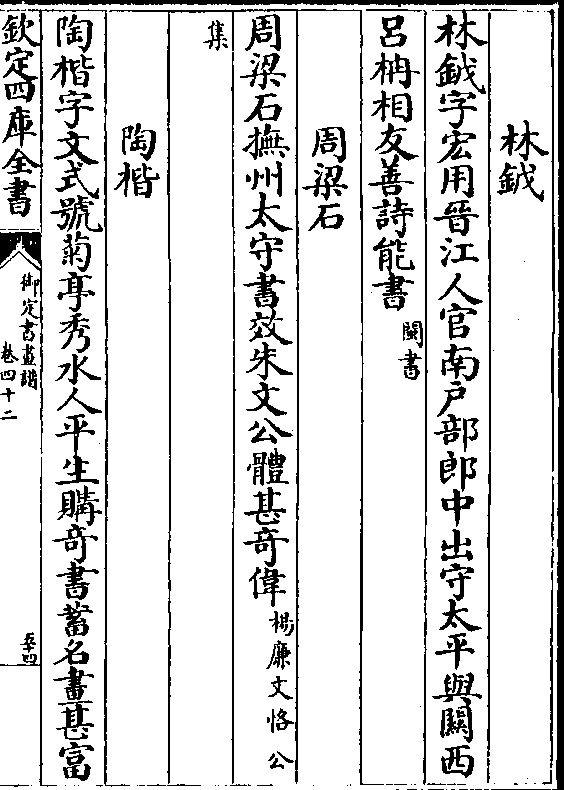 林鉞
林鉞字宏用晉江人官南戶部郎中出守太平與關西
呂柟相友善詩能書閩書
周梁石
周梁石撫州太守書效朱文公體甚奇偉楊廉文恪公
集
陶楷
陶楷字文式號菊亭秀水人平生購奇書蓄名畫甚富
欽定四庫全書
御定書畫譜
卷四十二
五十四